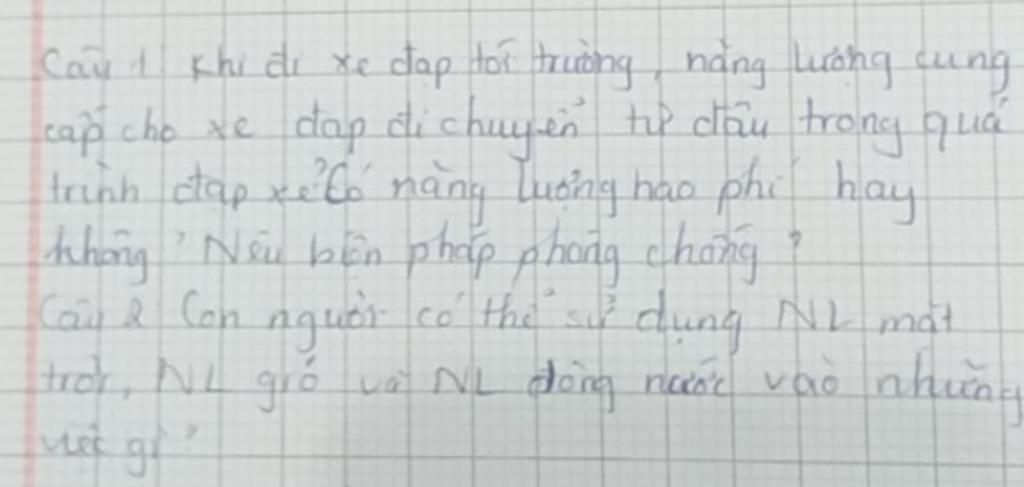 Câu 1 Khi đi xe đạp tới trường, năng lượng cung
cấp cho xe đạp di chuyển từ đâu trong quá
trình đạp xe? Có năng lượng hao phí hay
không? Nêu biện pháp phòng chống?
Câu 2 Con người có thể sử dụng NL mặt
trời, NL gió và NL dòng nước vào những
việc gì?